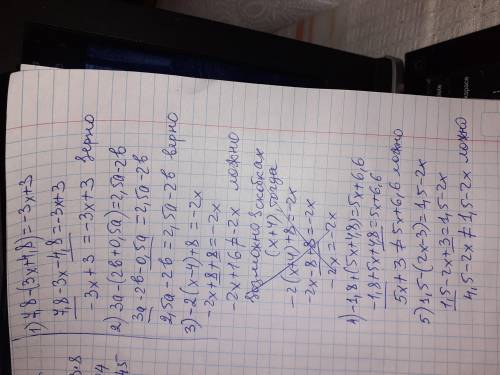 1) 7,8-(3x+4,8)=-3x+3
7,8-3x-4,8=-3x+3
-3x+3=-3x+3 верно
2) 3a-(2в+0,5a)=2,5a-2в
3a-2в-0,5a=2,5a-2в
2,5a-2в=2,5a-2в верно
3) -2(x-4)+8=-2x
-2x+8+8=-2x
-2x+16≠-2x ложно
Возможно в скобках
(x+4), тогда
-2(x+4)+8=-2x
-2x-8+8=-2x
-2x=-2x
4) -1,8+(5x+4,8)=5x+6,6
-1,8+5x+4,8=5x+6,6
5x+3≠5x+6,6 ложно
5) 1,5-(2x-3)=1,5-2x
1,5-2x+3=1,5-2x
4,5-2x≠1,5-2x ложно